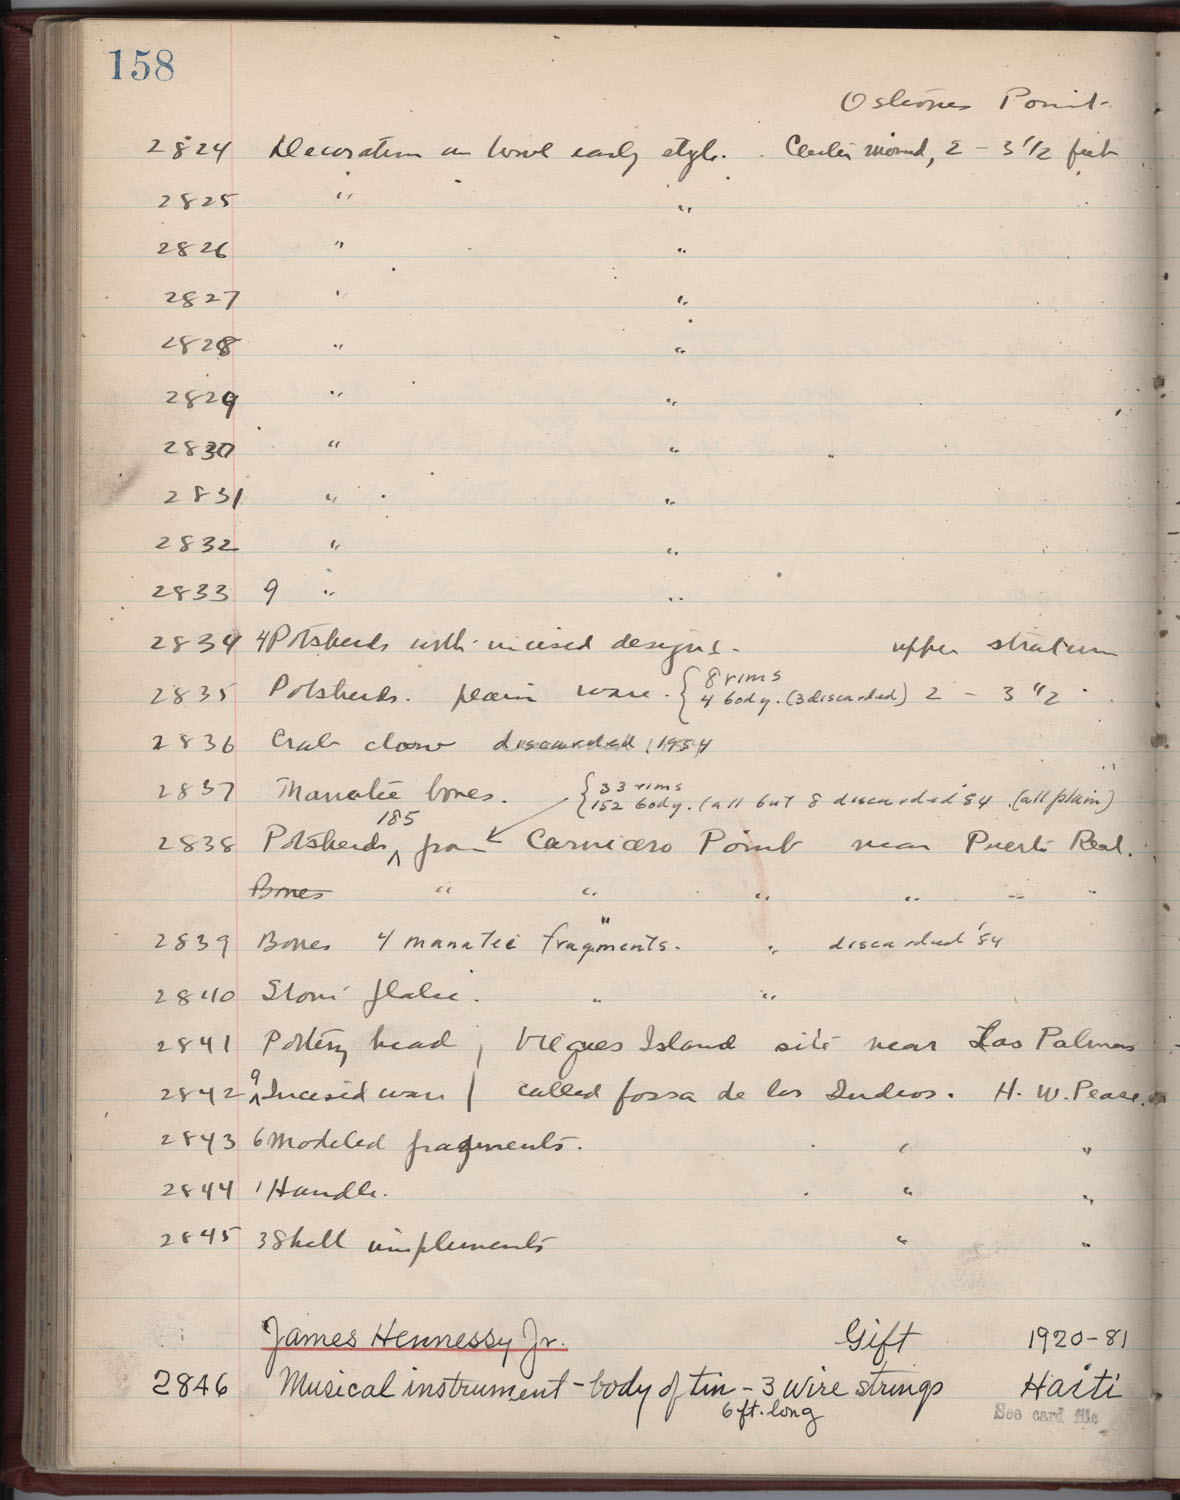 158
Ostiones Point.
2824 Decoration on bowl early style. Center mound, 2 - 3 1/2 feet
2825 " "
2826 " "
2827 " "
2828 " "
2829 " "
2830 " "
2831 " "
2832 " "
2833 9 " "
2834 4 Potsherds with incised designs. upper stratum
2835 Potsherds. plain ware. { 8 rims
4 body. (3 discarded) 2 - 3 1/2
2836 Crab claw discarded, 1954
2837 Manatee bones. { 33 rims
152 body. (all but 8 discarded '54 (all plain)
185
2838 Potsherds ^ from Carnicero Point near Puerto Real.
Bones " " " " " "
2839 Bones 4 manatee fragments. " " discarded '54
2840 Stone flake. " "
2841 Pottery head, Vieques Island site near Las Palmas
2842 9 ^ Incised ware | called fossa de los Indios. H. W. Pease.
2843 6 Modeled fragments. " "
2844 1 Handle. " "
2845 3 Shell implements " "
James Hennessy Jr. Gift 1920-81
2846 Musical instrument - body of tin - 3 wire strings Haiti
6 ft. long
See card file